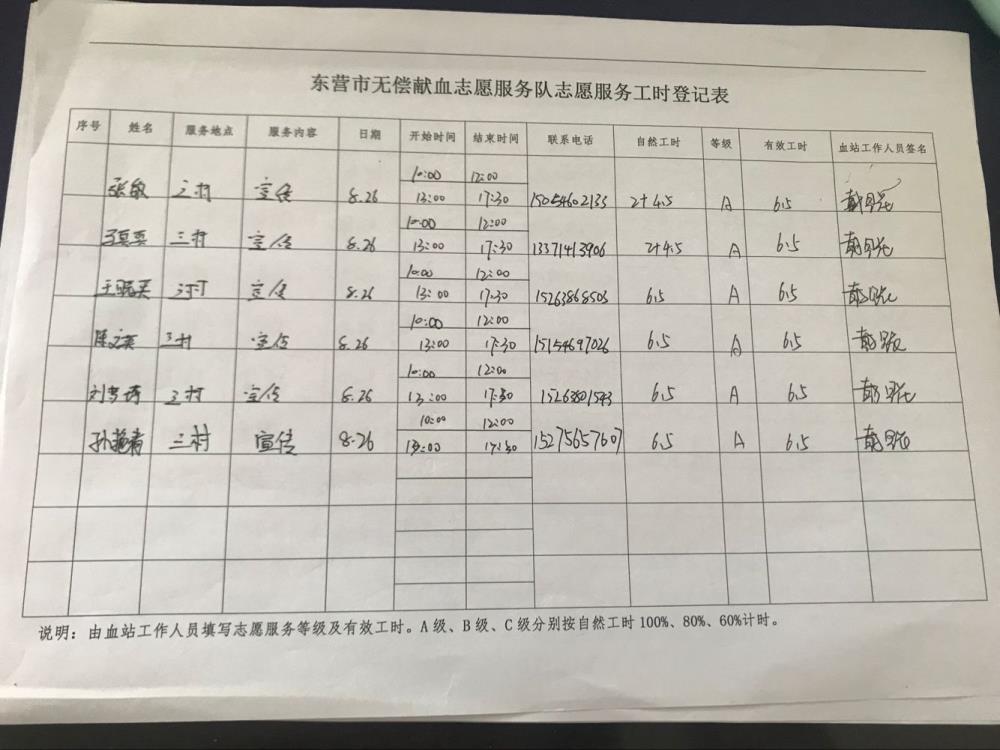 东营市无偿献血志愿服务队志愿服务工时登记表
序号 姓名 服务地点 服务内容 日期 开始时间 结束时间 联系电话 自然工时 等级 有效工时 血站工作人员签名
10:00 12:00
张敏 三村 宣传 8.26 13:00 17:30 15054602133 2+4.5 A 6.5
10:00 12:00
三村 宣传 8.26 13:00 17:30 13371413906 2+4.5 A 6.5
10:00 12:00
三村 宣传 8.26 13:00 17:30 15263868503 6.5 A 6.5
10:00 12:00
三村 宣传 8.26 13:00 17:30 15154697026 6.5 A 6.5
10:00 12:00
三村 宣传 8.26 13:00 17:30 15263801543 6.5 A 6.5
10:00 12:00
三村 宣传 8.26 13:00 17:30 15275657607 6.5 A 6.5
说明：由血站工作人员填写志愿服务等级及有效工时。A级、B级、C级分别按自然工时100%、80%、60%计时。